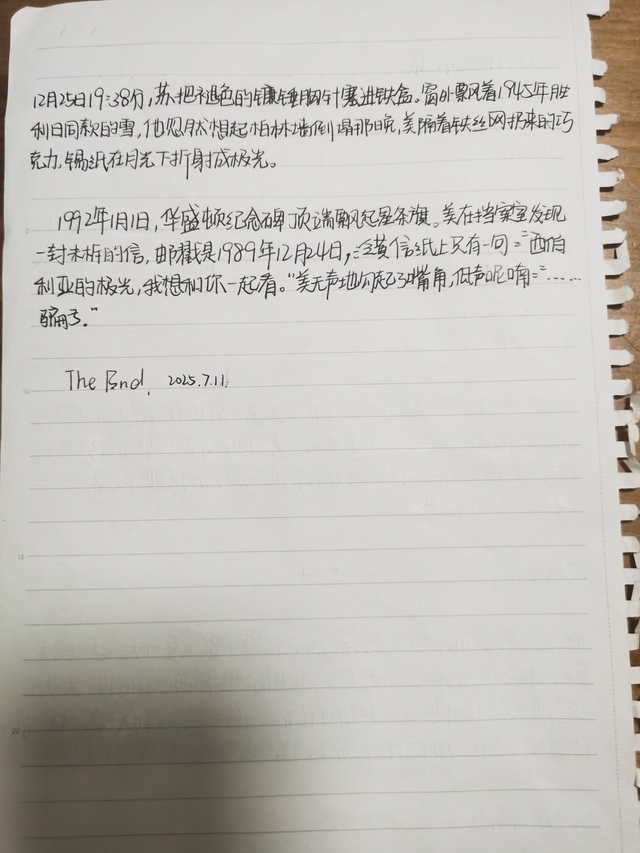 12月25日19:38分,苏把不退色的镰锤胸针塞进铁盒。窗外飘着1945年胜
利日同款的雪,他忽然想起柏林墙倒塌那晚,美隔着铁丝网扔来的巧
克力,锡纸在月光下折射成极光。
1992年1月1日,华盛顿纪念碑顶端飘起星条旗。美在档案室发现
一封未拆的信,邮戳是1989年12月24日,泛黄信纸上只有一句:"西伯
利亚的极光,我想和你一起看。"美无声地勾起了嘴角,低声呢喃:"……
骗子。"
The End. 2025.7.11.